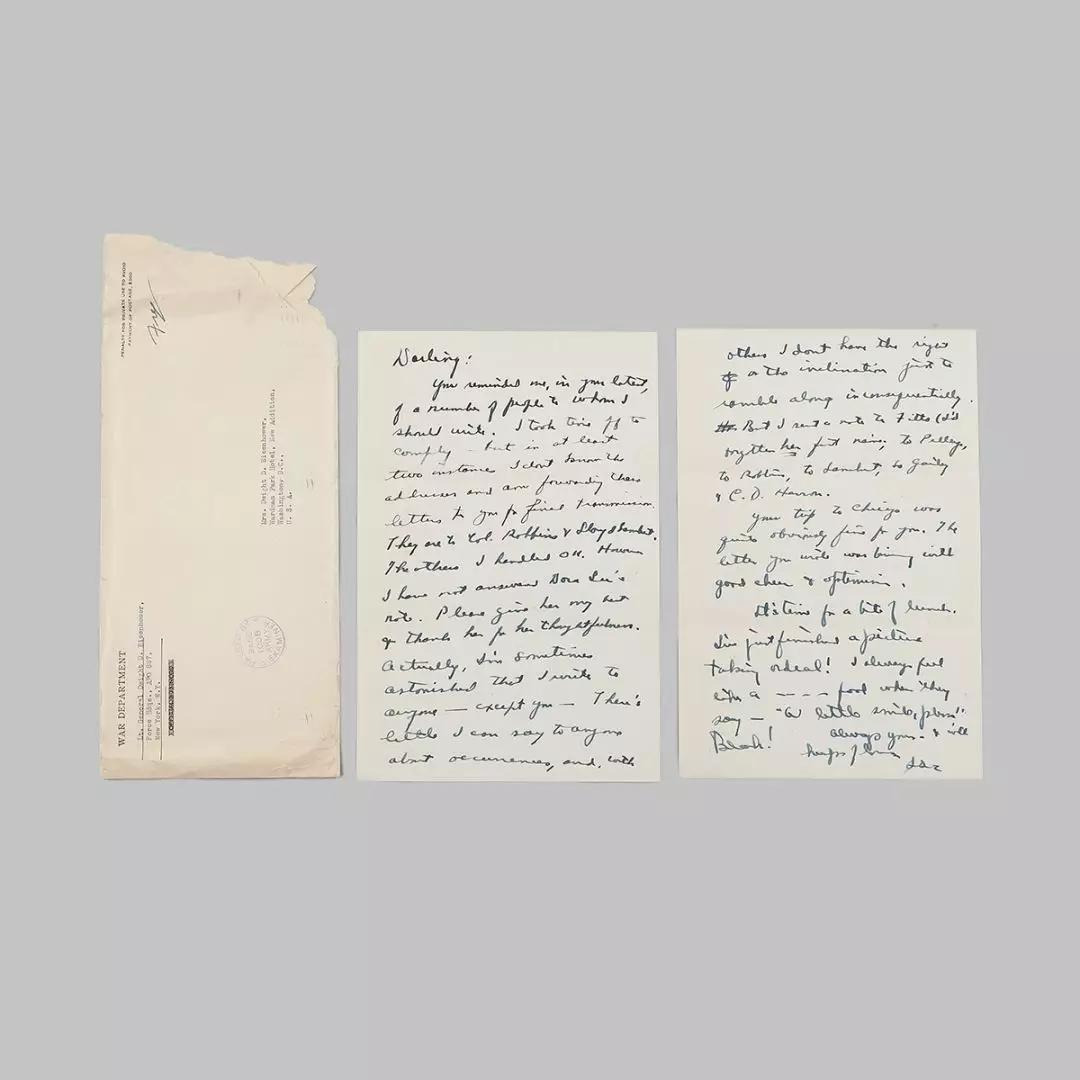 PENALTY FOR PRIVATE USE TO AVOID
PAYMENT OF POSTAGE, $300
Mrs. Dwight D. Eisenhower,
Wardman Park Hotel, New Addition,
Washington, D.C.,
U. S. A.
WAR DEPARTMENT
Lt. General Dwight D. Eisenhower,
Force Hdqs., APO 887,
New York, N.Y.
Darling:
You reminded me, in your latest,
of a number of people to whom I
should write. I took time off to
comply - but in at least
two instances I dont know the
addresses and am forwarding these
letters to you for final transmission.
They are to Col. Robbins & Lloyd Lambert.
The others I handled OK. However
I have not answered Dora Lee's
note. Please give her my best
& thanks for her thoughtfulness.
Actually, I'm sometimes
astonished that I write to
anyone — except you — There's
little I can say to anyone
about occurrences, and, with
others I dont have the right
or the inclination just to
ramble along inconsequentially.
But I sent a note to (I'd
forgotten her first name, to
to Robbins, to Lambert, to Gailey
& C. D. Herron.
Your trip to Chicago was
quite obviously fine for you. The
letter you wrote was brimming with
good cheer & optimism.
It's time for a bite of lunch.
I've just finished a picture
taking ordeal! I always feel
like a - - - - fool when they
say — "A little smile, please".
Blah! always yours - & will
Ike